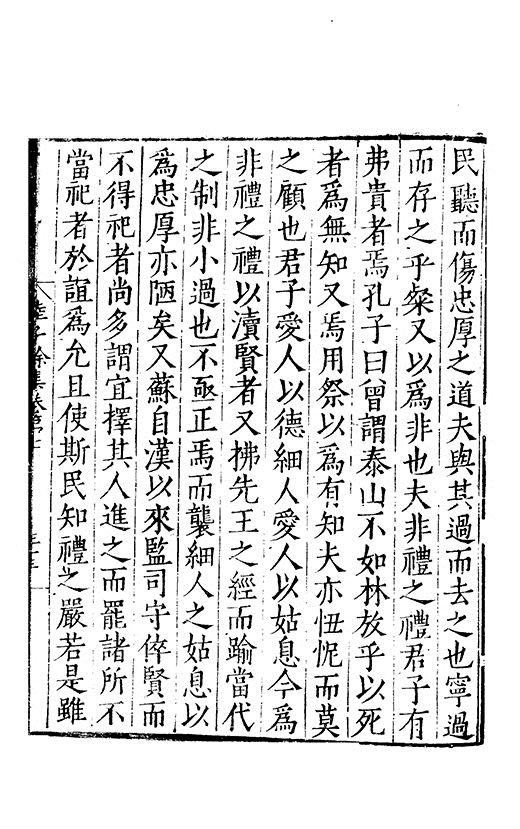 民聽而傷忠厚之道夫與其過而去之也寧過
而存之乎粲又以爲非也夫非禮之禮君子有
弗貴者焉孔子曰曾謂泰山不如林放乎以死
者爲無知又焉用祭以爲有知夫亦忸怩而莫
之顧也君子愛人以德細人愛人以姑息今爲
非禮之禮以瀆賢者又拂先王之經而踰當代
之制非小過也不亟正焉而襲細人之姑息以
爲忠厚亦陋矣又蘇自漢以來監司守倅賢而
不得祀者尚多謂宜擇其人進之而罷諸所不
當祀者於誼爲允且使斯民知禮之嚴若是雖